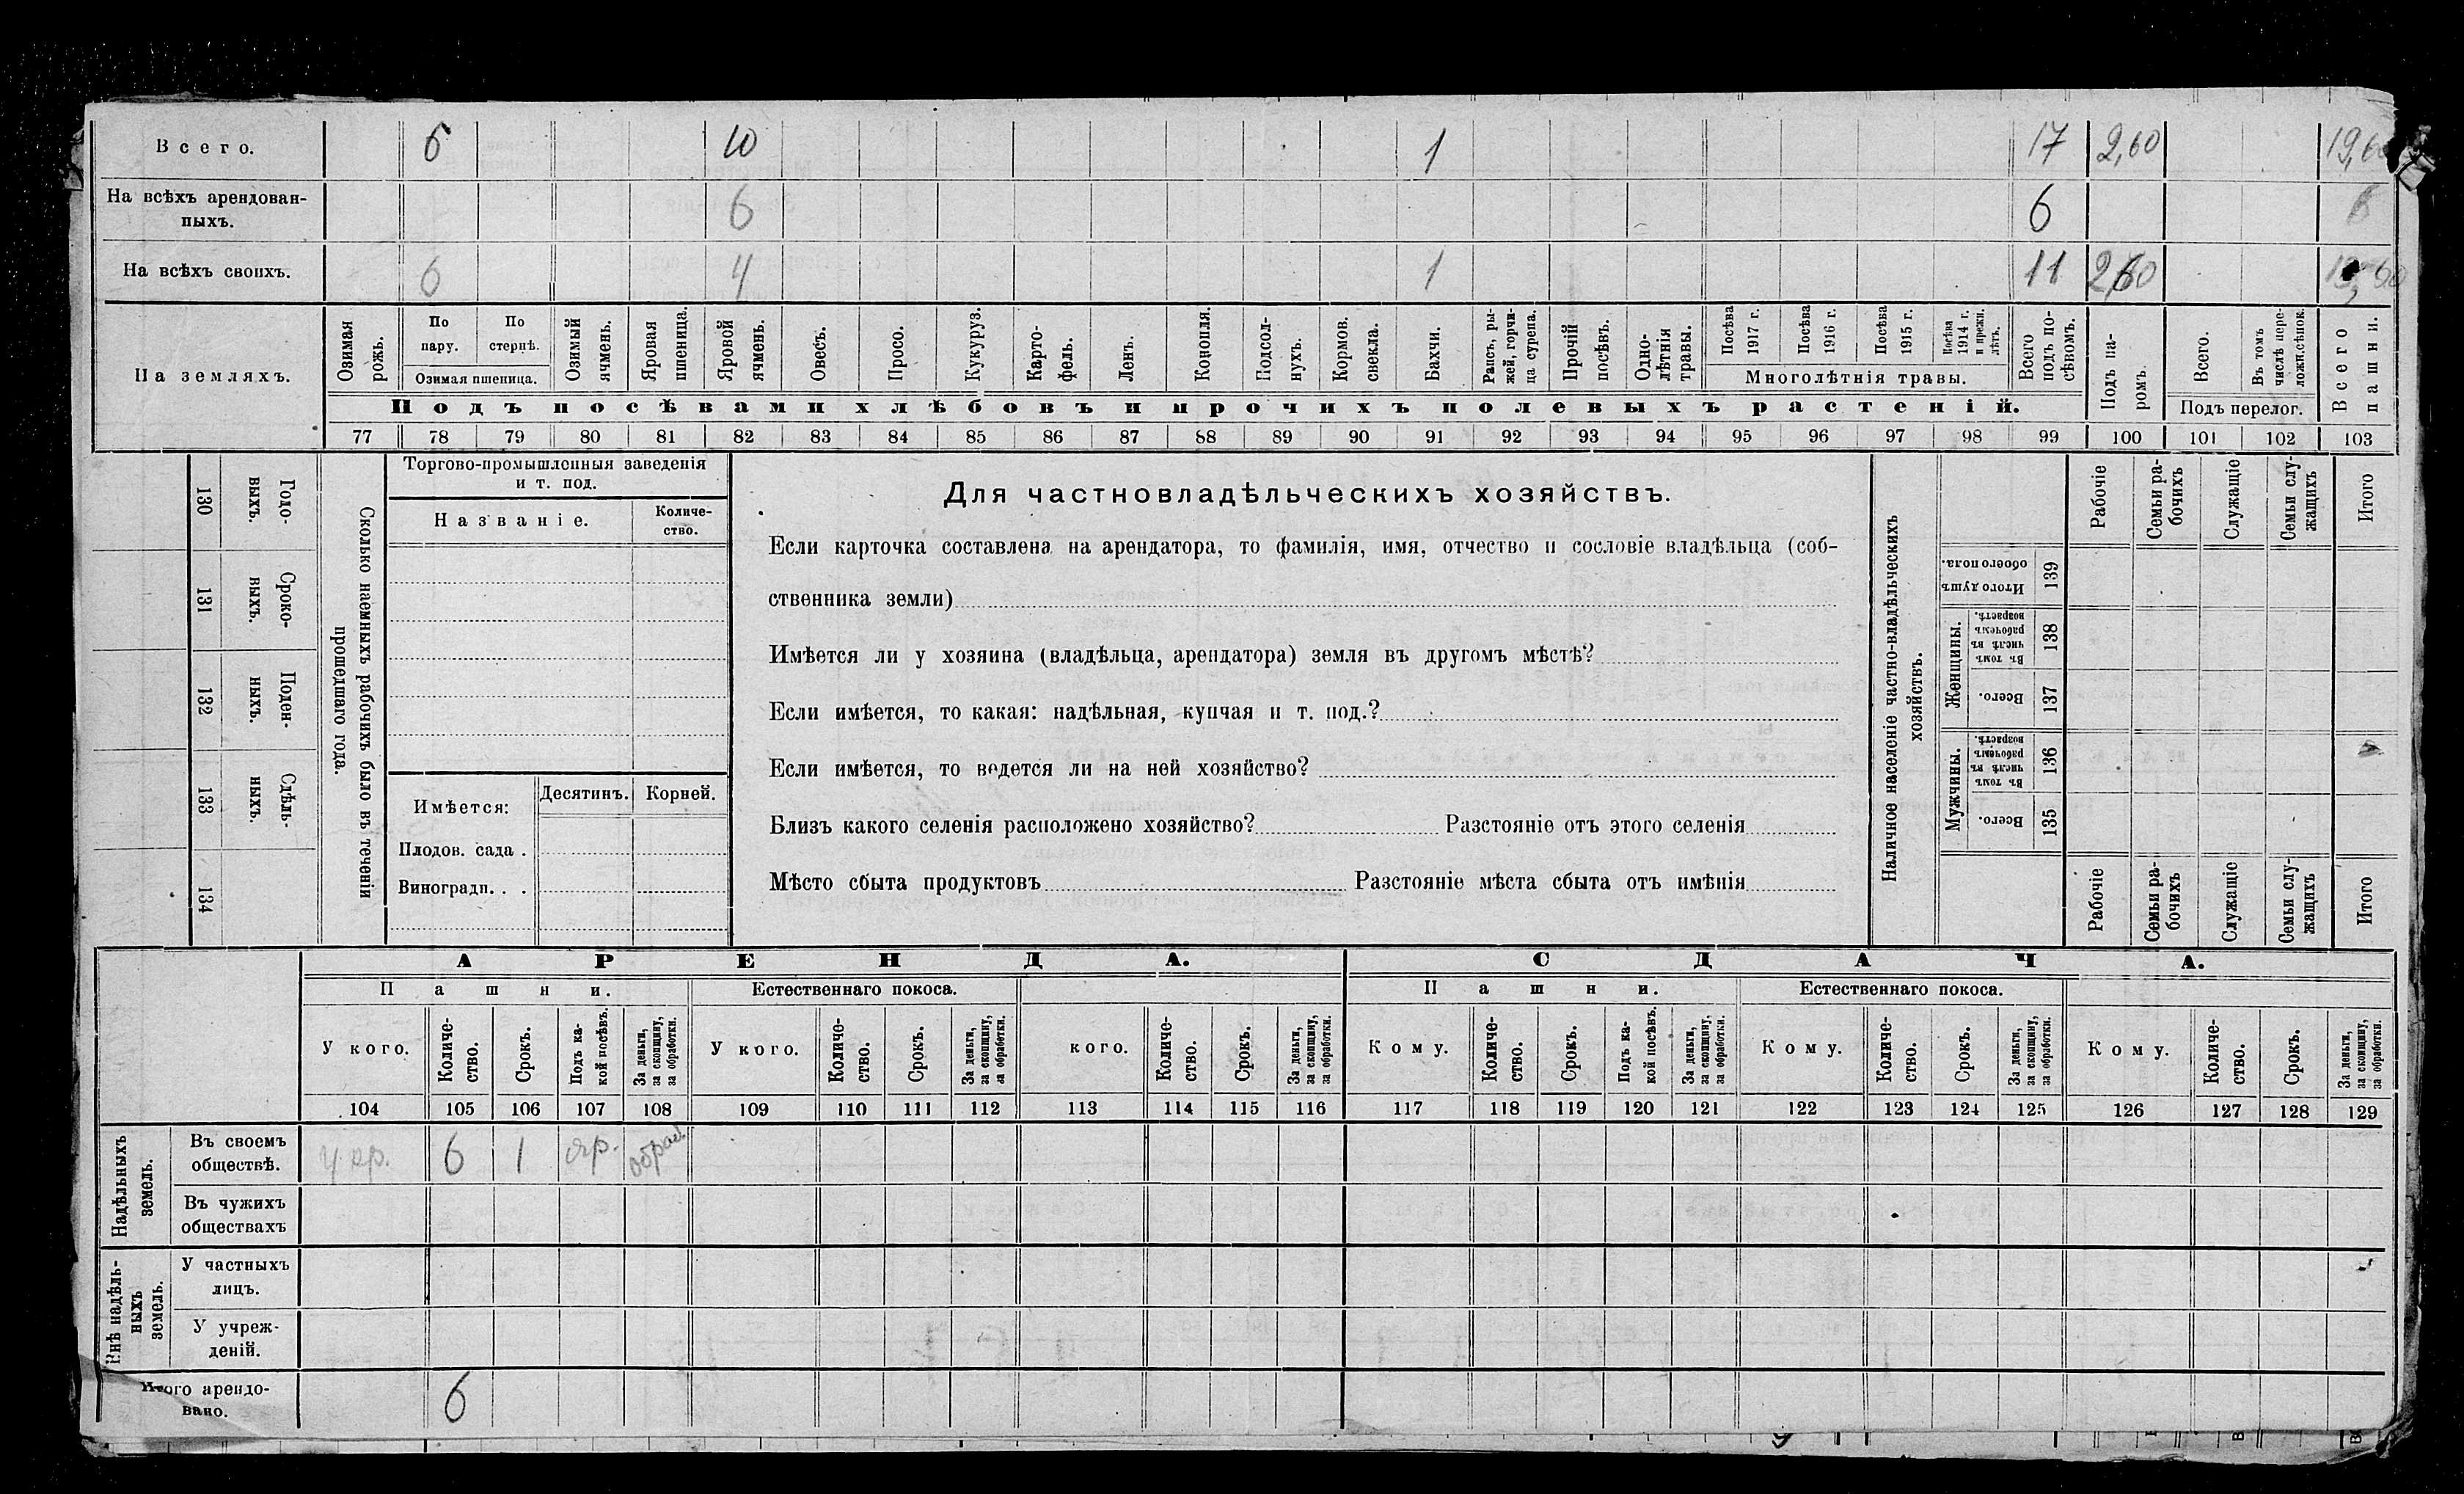 Всего. 6 10 1 17 2,60 19,60
На всѣхъ арендован-
ныхъ. 6 6 6
На всѣхъ своихъ. 6 4 1 11 2,60
На земляхъ.
Озимая
рожь.
По
пару.
По
стернѣ.
Озимая пшеница.
Озимый
ячмень.
Яровая
пшеница.
Яровой
ячмень.
Овесъ.
Просо.
Кукуруз.
Карто-
фель.
Ленъ.
Конопля.
Подсол-
нухъ.
Кормов.
свекла.
Бахчи.
Рапсъ, ры-
жей, горчи-
ца сурепа.
Прочій
посѣвъ.
Одно-
лѣтнія
травы.
Посѣва
1917 г.
Посѣва
1916 г.
Посѣва
1915 г.
Посѣва
1914 г.
и прежн.
лѣтъ.
Многолѣтнія травы.
Всего
подъ по-
сѣвомъ.
Подъ па-
ромъ.
Всего.
Въ томъ
числѣ пере-
ложн.сѣнок.
Подъ перелог.
Всего
пашни.
Подъ посѣвами хлѣбовъ и прочихъ полевыхъ растеній.
77 78 79 80 81 82 83 84 85 86 87 88 89 90 91 92 93 94 95 96 97 98 99 100 101 102 103
130 Годо-
выхъ.
131 Сроко-
выхъ.
132 Поден-
ныхъ.
133 Сдѣль-
ныхъ.
134
Сколько наемныхъ рабочихъ было въ теченіи
прошедшаго года.
Торгово-промышленныя заведенія
и т. под.
Названіе.
Количе-
ство.
Имѣется:
Десятинъ. Корней.
Плодов. сада .
Виноградн. . .
Для частновладѣльческихъ хозяйствъ.
Если карточка составлена на арендатора, то фамилія, имя, отчество и сословіе владѣльца (соб-
ственника земли)
Имѣется ли у хозяина (владѣльца, арендатора) земля въ другомъ мѣстѣ?
Если имѣется, то какая: надѣльная, купчая и т. под.?
Если имѣется, то ведется ли на ней хозяйство?
Близъ какого селенія расположено хозяйство? Разстояніе отъ этого селенія
Мѣсто сбыта продуктовъ Разстояніе мѣста сбыта отъ имѣнія
Наличное населеніе частно-владѣльческихъ
хозяйствъ.
Рабочіе
Семьи ра-
бочихъ
Служащіе
Семьи слу-
жащихъ
Итого
Итого душъ
обоего пола.
139
Женщины.
Въ томъ
числѣ въ
рабочемъ
возрастѣ.
138
Всего.
137
Мужчины.
Въ томъ
числѣ въ
рабочемъ
возрастѣ.
136
Всего.
135
Рабочіе
Семьи ра-
бочихъ
Служащіе
Семьи слу-
жащихъ
Итого
АРЕНДА. СДАЧА.
Пашни. Естественнаго покоса. Пашни. Естественнаго покоса.
У кого.
Количе-
ство.
Срокъ.
Подъ ка-
кой посѣвъ.
За деньги,
за скопщину,
за обработки.
У кого.
Количе-
ство.
Срокъ.
За деньги,
за скопщину,
за обработки.
кого.
Количе-
ство.
Срокъ.
За деньги,
за скопщину,
за обработки.
Кому.
Количе-
ство.
Срокъ.
Подъ ка-
кой посѣвъ.
За деньги,
за скопщину,
за обработки.
Кому.
Количе-
ство.
Срокъ.
За деньги,
за скопщину,
за обработки.
Кому.
Количе-
ство.
Срокъ.
За деньги,
за скопщину,
за обработки.
104 105 106 107 108 109 110 111 112 113 114 115 116 117 118 119 120 121 122 123 124 125 126 127 128 129
Надѣльныхъ
земель.
Въ своемъ
обществѣ. 6 1 яр.
Въ чужихъ
обществахъ
Внѣ надѣль-
ныхъ
земель.
У частныхъ
лицъ.
У учреж-
деній.
Итого арендо-
вано. 6